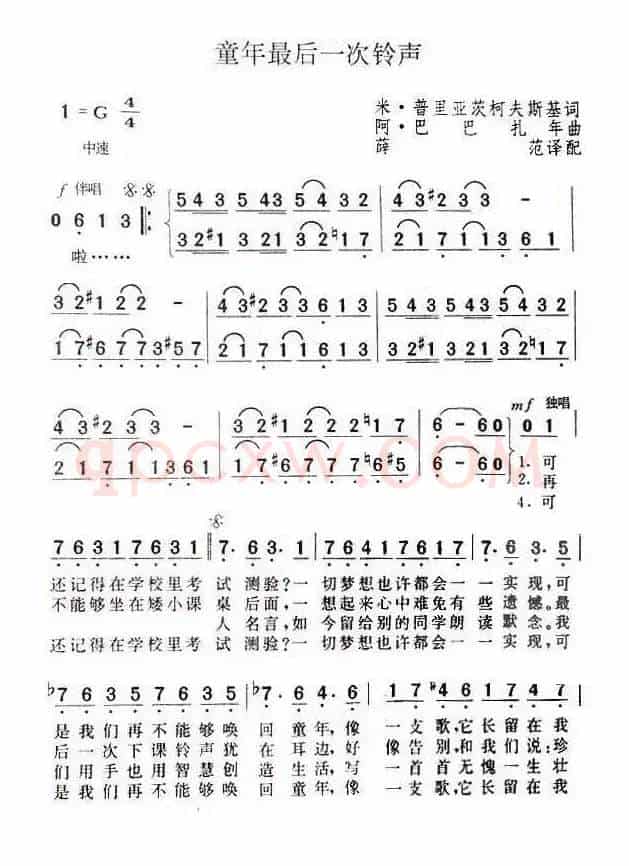 童年最后一次铃声
1=G 4/4
米·普里亚茨柯夫斯基词
阿·巴巴扎年曲
薛范译配
中速
f 伴唱
0 6 1 3
啦……
5 4 3 5 4 3 5 4 3 2 4 3 #2 -
3 2 #1 3 2 1 3 2 ♮1 7 2 1 7 1 1 3 6 1
3 2 #1 2 2 - 4 3 #2 3 3 6 1 3 5 4 3 5 4 3 5 4 3 2
1 7 #6 7 7 3 #5 7 2 1 7 1 1 1 3 3 2 #1 3 2 1 3 2 ♮1 7
4 3 #2 3 - 3 2 #1 2 2 2 ♮1 7 6 - 6 0
mf 独唱
0 1
2 1 7 1 1 3 6 1 1 7 #6 7 7 7 ♮6 #5 6 - 6 0
1.可
2.再
4.可
qpcxw.com
7 6 3 1 7 6 3 1 7. 6 3. 1 7 6 4 1 7 6 4 1 7. 6 3. 5
还记得在学校里考试测验?一切梦想也许都会一一实现,可
不能够坐在矮小课桌后面,一想起来心中难免有些遗憾。最
人名言,如今留给别的同学朗读默念。我
还记得在学校里考试测验?一切梦想也许都会一一实现,可
♭7 6 3 5 7 6 3 5 ♭7. 6 4. 6 1 7 #4 6 1 7 4 7
是我们再不能够唤回童年,像一支歌,它长留在我
后一次下课铃声犹在耳边,好像告别,和我们说:珍
们用手也用智慧创造生活,写一首首无愧一生壮
是我们再不能够唤回童年,像一支歌,它长留在我